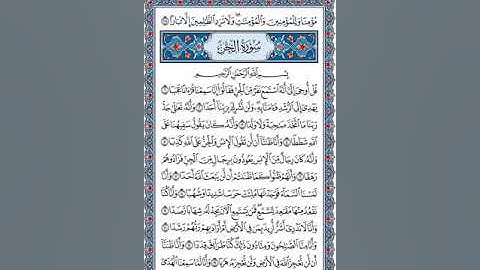 مُؤْمِنًا وَلِلْمُؤْمِنِينَ وَٱلْمُؤْمِنَٰتِ وَلَا تَزِدِ ٱلظَّٰلِمِينَ إِلَّا تَبَارًۢا ٢٨
سُورَةُ الجِنِّ
بِسْمِ ٱللَّهِ ٱلرَّحْمَٰنِ ٱلرَّحِيمِ
قُلْ أُوحِىَ إِلَىَّ أَنَّهُ ٱسْتَمَعَ نَفَرٌ مِّنَ ٱلْجِنِّ فَقَالُوٓا۟ إِنَّا سَمِعْنَا قُرْءَانًا عَجَبًا ١
يَهْدِىٓ إِلَى ٱلرُّشْدِ فَـَٔامَنَّا بِهِۦ وَلَن نُّشْرِكَ بِرَبِّنَآ أَحَدًا ٢ وَأَنَّهُۥ تَعَٰلَىٰ جَدُّ
رَبِّنَا مَا ٱتَّخَذَ صَٰحِبَةً وَلَا وَلَدًا ٣ وَأَنَّهُۥ كَانَ يَقُولُ سَفِيهُنَا عَلَى
ٱللَّهِ شَطَطًا ٤ وَأَنَّا ظَنَنَّآ أَن لَّن تَقُولَ ٱلْإِنسُ وَٱلْجِنُّ عَلَى ٱللَّهِ كَذِبًا ٥
وَأَنَّهُۥ كَانَ رِجَالٌ مِّنَ ٱلْإِنسِ يَعُوذُونَ بِرِجَالٍ مِّنَ ٱلْجِنِّ فَزَادُوهُمْ
رَهَقًا ٦ وَأَنَّهُمْ ظَنُّوا۟ كَمَا ظَنَنتُمْ أَن لَّن يَبْعَثَ ٱللَّهُ أَحَدًا ٧ وَأَنَّا
لَمَسْنَا ٱلسَّمَآءَ فَوَجَدْنَٰهَا مُلِئَتْ حَرَسًا شَدِيدًا وَشُهُبًا ٨ وَأَنَّا كُنَّا
نَقْعُدُ مِنْهَا مَقَٰعِدَ لِلسَّمْعِ فَمَن يَسْتَمِعِ ٱلْـَٔانَ يَجِدْ لَهُۥ شِهَابًا رَّصَدًا ٩
وَأَنَّا لَا نَدْرِىٓ أَشَرٌّ أُرِيدَ بِمَن فِى ٱلْأَرْضِ أَمْ أَرَادَ بِهِمْ رَبُّهُمْ رَشَدًا ١٠
وَأَنَّا مِنَّا ٱلصَّٰلِحُونَ وَمِنَّا دُونَ ذَٰلِكَ كُنَّا طَرَآئِقَ قِدَدًا ١١ وَأَنَّا ظَنَنَّآ
أَن لَّن نُّعْجِزَ ٱللَّهَ فِى ٱلْأَرْضِ وَلَن نُّعْجِزَهُۥ هَرَبًا ١٢ وَأَنَّا لَمَّا سَمِعْنَا ٱلْهُدَىٰٓ